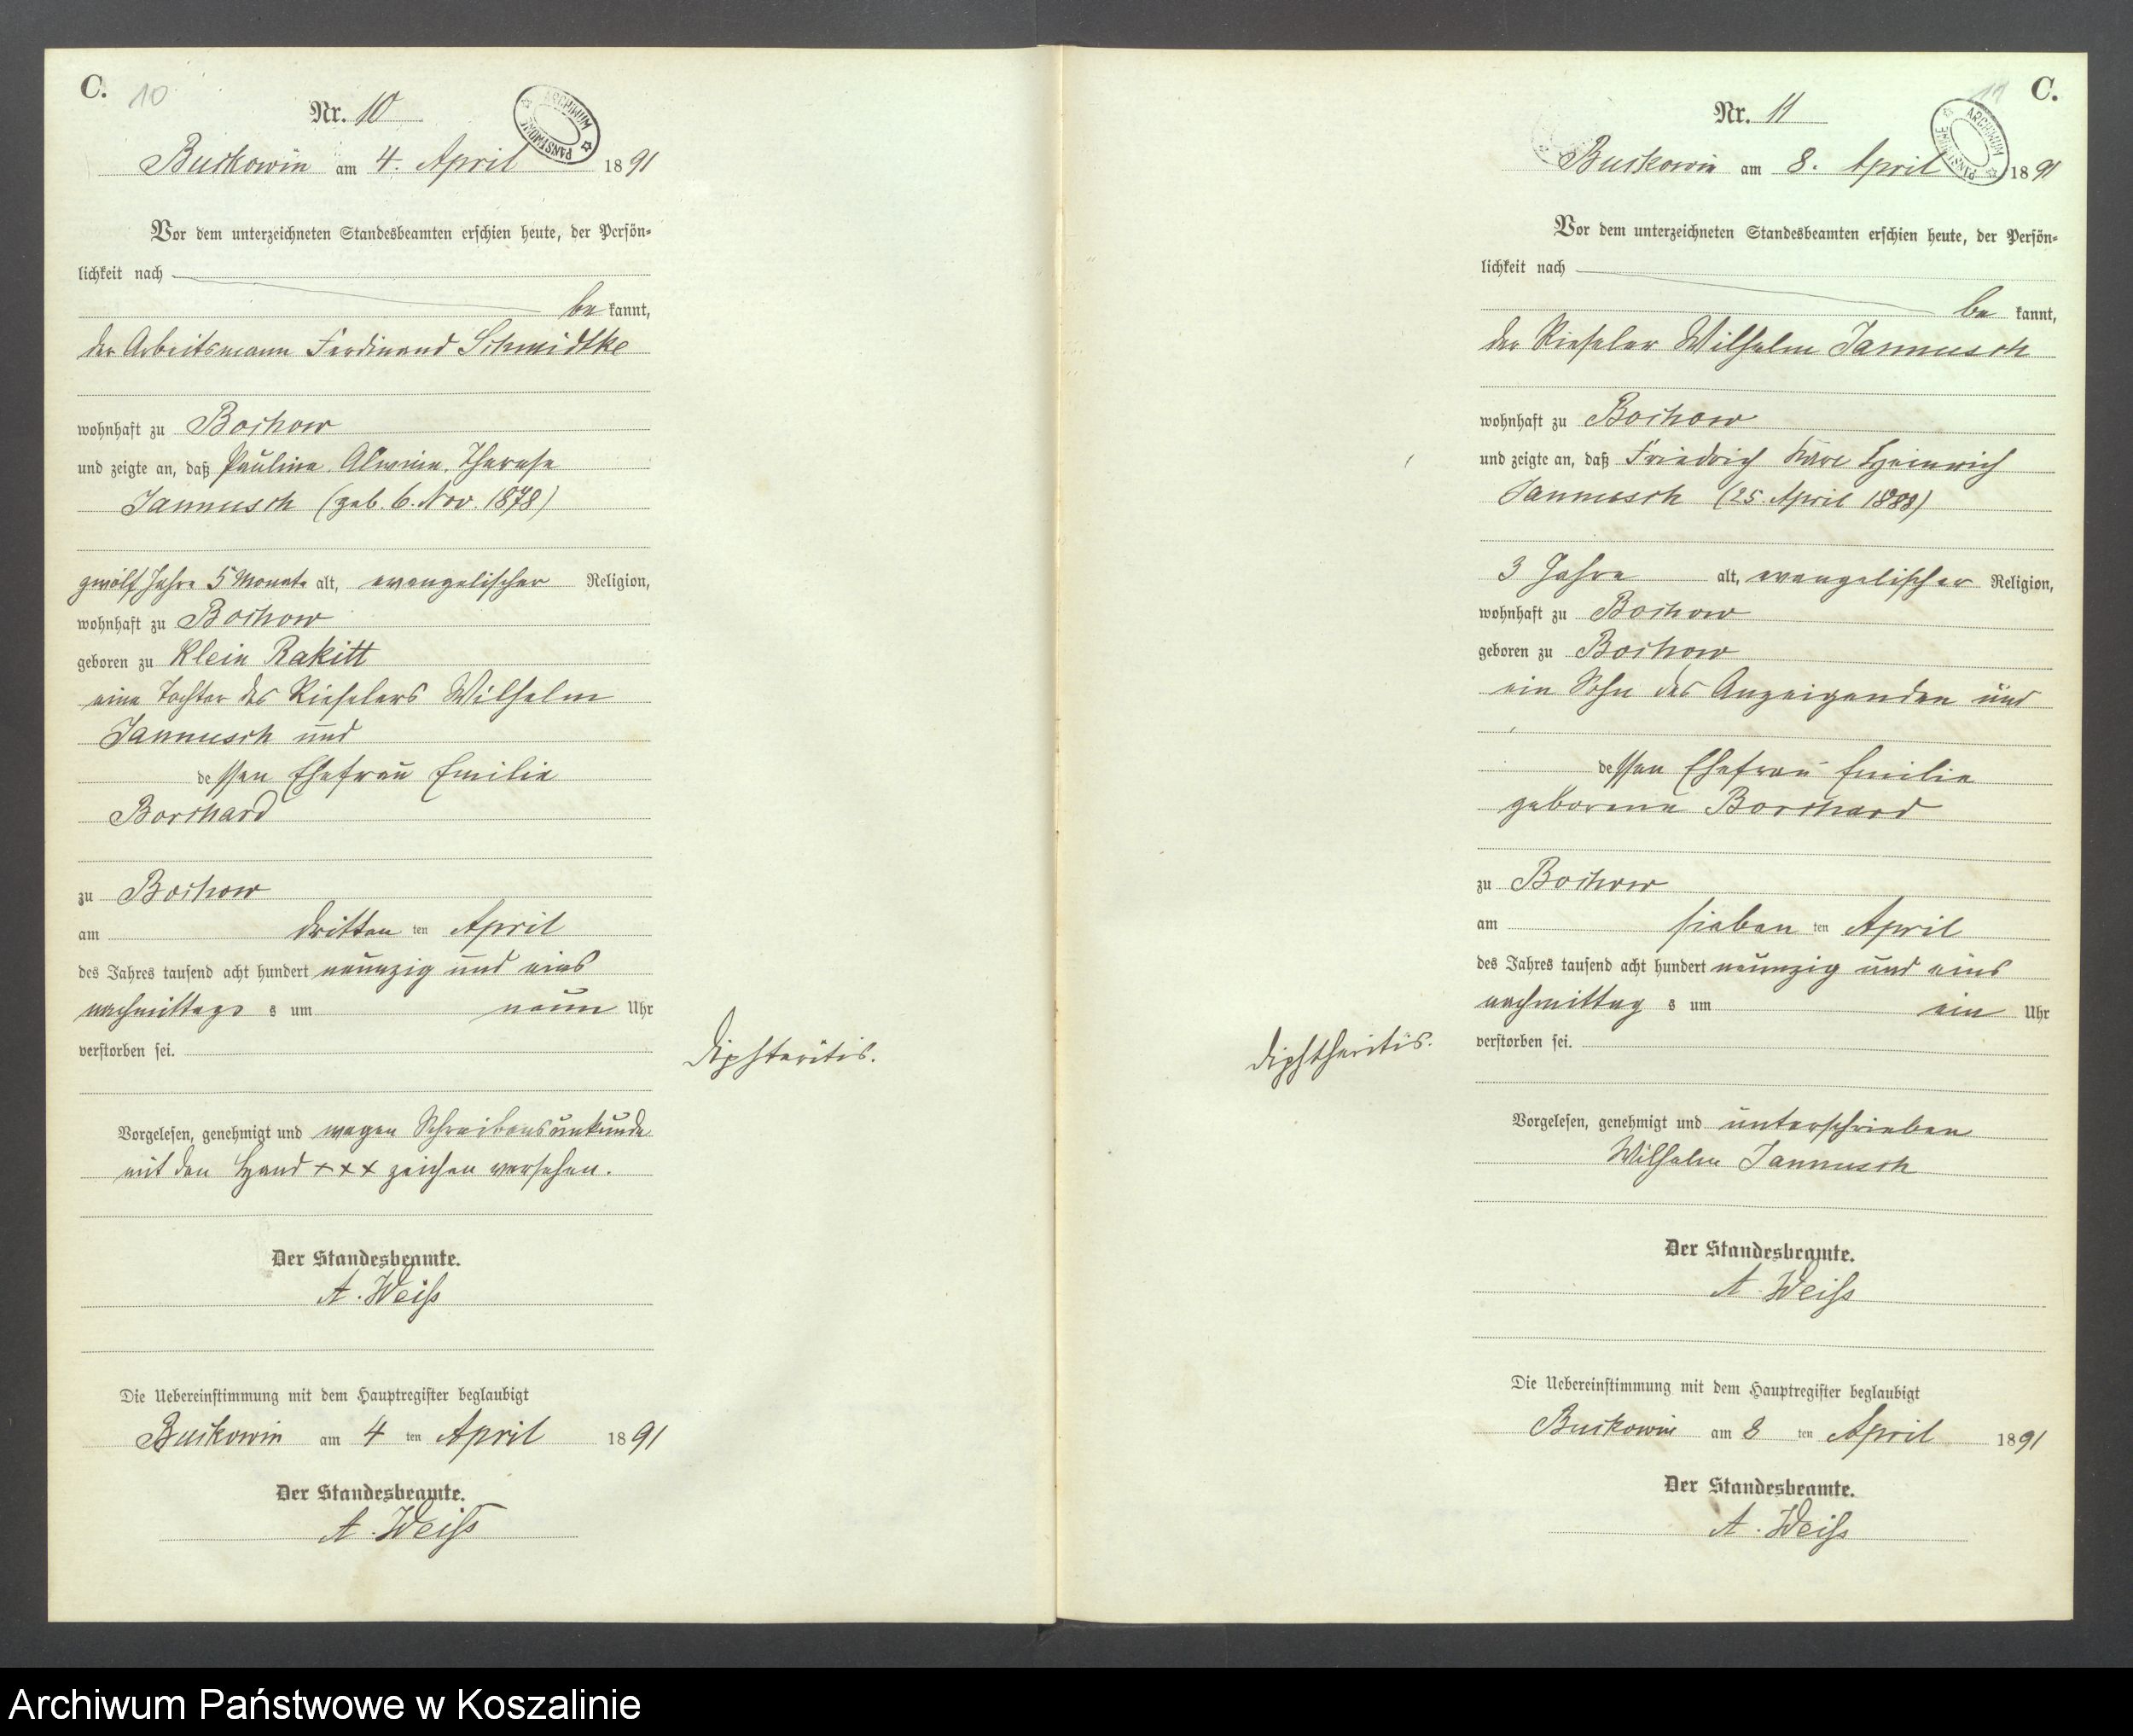 C. 10
Nr. 10
ARCHIWUM PAŃSTWOWE
Buckowin am 4. April 1891
Vor dem unterzeichneten Standesbeamten erschien heute, der Persön-
lichkeit nach
be kannt,
der Arbeitsmann Ferdinand Schmidtke
wohnhaft zu Bochow
und zeigte an, daß Pauline Alwine Therese
Jannusch (geb. 6. Nov. 1878)
zwölf Jahre 5 Monate alt, evangelischer Religion,
wohnhaft zu Bochow
geboren zu Klein Rakitt
eine Tochter des Rieselers Wilhelm
Jannusch und
dessen Ehefrau Emilie
Borchard
zu Bochow
am dritten ten April
des Jahres tausend acht hundert neunzig und eins
nachmittags s um neun Uhr
verstorben sei.
Diphteritis.
Vorgelesen, genehmigt und wegen Schreibensunkunde
mit den Hand + x x zeichen versehen.
Der Standesbeamte.
A. Weiß
Die Uebereinstimmung mit dem Hauptregister beglaubigt
Buckowin am 4 ten April 1891
Der Standesbeamte.
A. Weiß
11 C.
Nr. 11
ARCHIWUM PAŃSTWOWE
Buckowin am 8. April 1891
Vor dem unterzeichneten Standesbeamten erschien heute, der Persön-
lichkeit nach
be kannt,
der Rieseler Wilhelm Jannusch
wohnhaft zu Bochow
und zeigte an, daß Friedrich Karl Heinrich
Jannusch (25. April 1888)
3 Jahre alt, evangelischer Religion,
wohnhaft zu Bochow
geboren zu Bochow
ein Sohn des Anzeigenden und
dessen Ehefrau Emilie
geborene Borchard
zu Bochow
am sieben ten April
des Jahres tausend acht hundert neunzig und eins
nachmittag s um ein Uhr
verstorben sei.
Diphtheritis.
Vorgelesen, genehmigt und unterschrieben
Wilhelm Jannusch
Der Standesbeamte.
A. Weiß
Die Uebereinstimmung mit dem Hauptregister beglaubigt
Buckowin am 8 ten April 1891
Der Standesbeamte.
A. Weiß
Archiwum Państwowe w Koszalinie